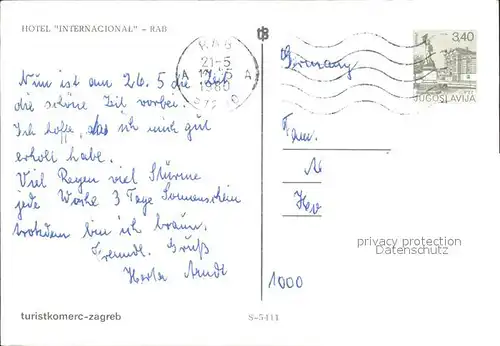 HOTEL "INTERNACIONAL" – RAB
RAB
21-5
1980
A A
3,40
JUGOSLAVIJA
Germany
Nun ist am 26.5 die Zeit
die schöne Zeit vorbei.
Ich hoffe, das ich mich gut
erholt habe.
Viel Regen viel Stürme
jede Woche 3 Tage Sonnenschein
trotzdem bin ich braun.
Freundl. Gruß
Herta Arndt
Fam.
1000
privacy protection
Datenschutz
turistkomerc-zagreb
S-5411